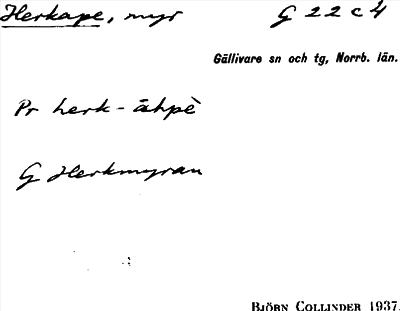 Herkape, myr G 22 c 4
Gällivare sn och tg, Norrb. län.
Pr herk-āhpè
G Herkmyran
BJÖRN COLLINDER 1937.